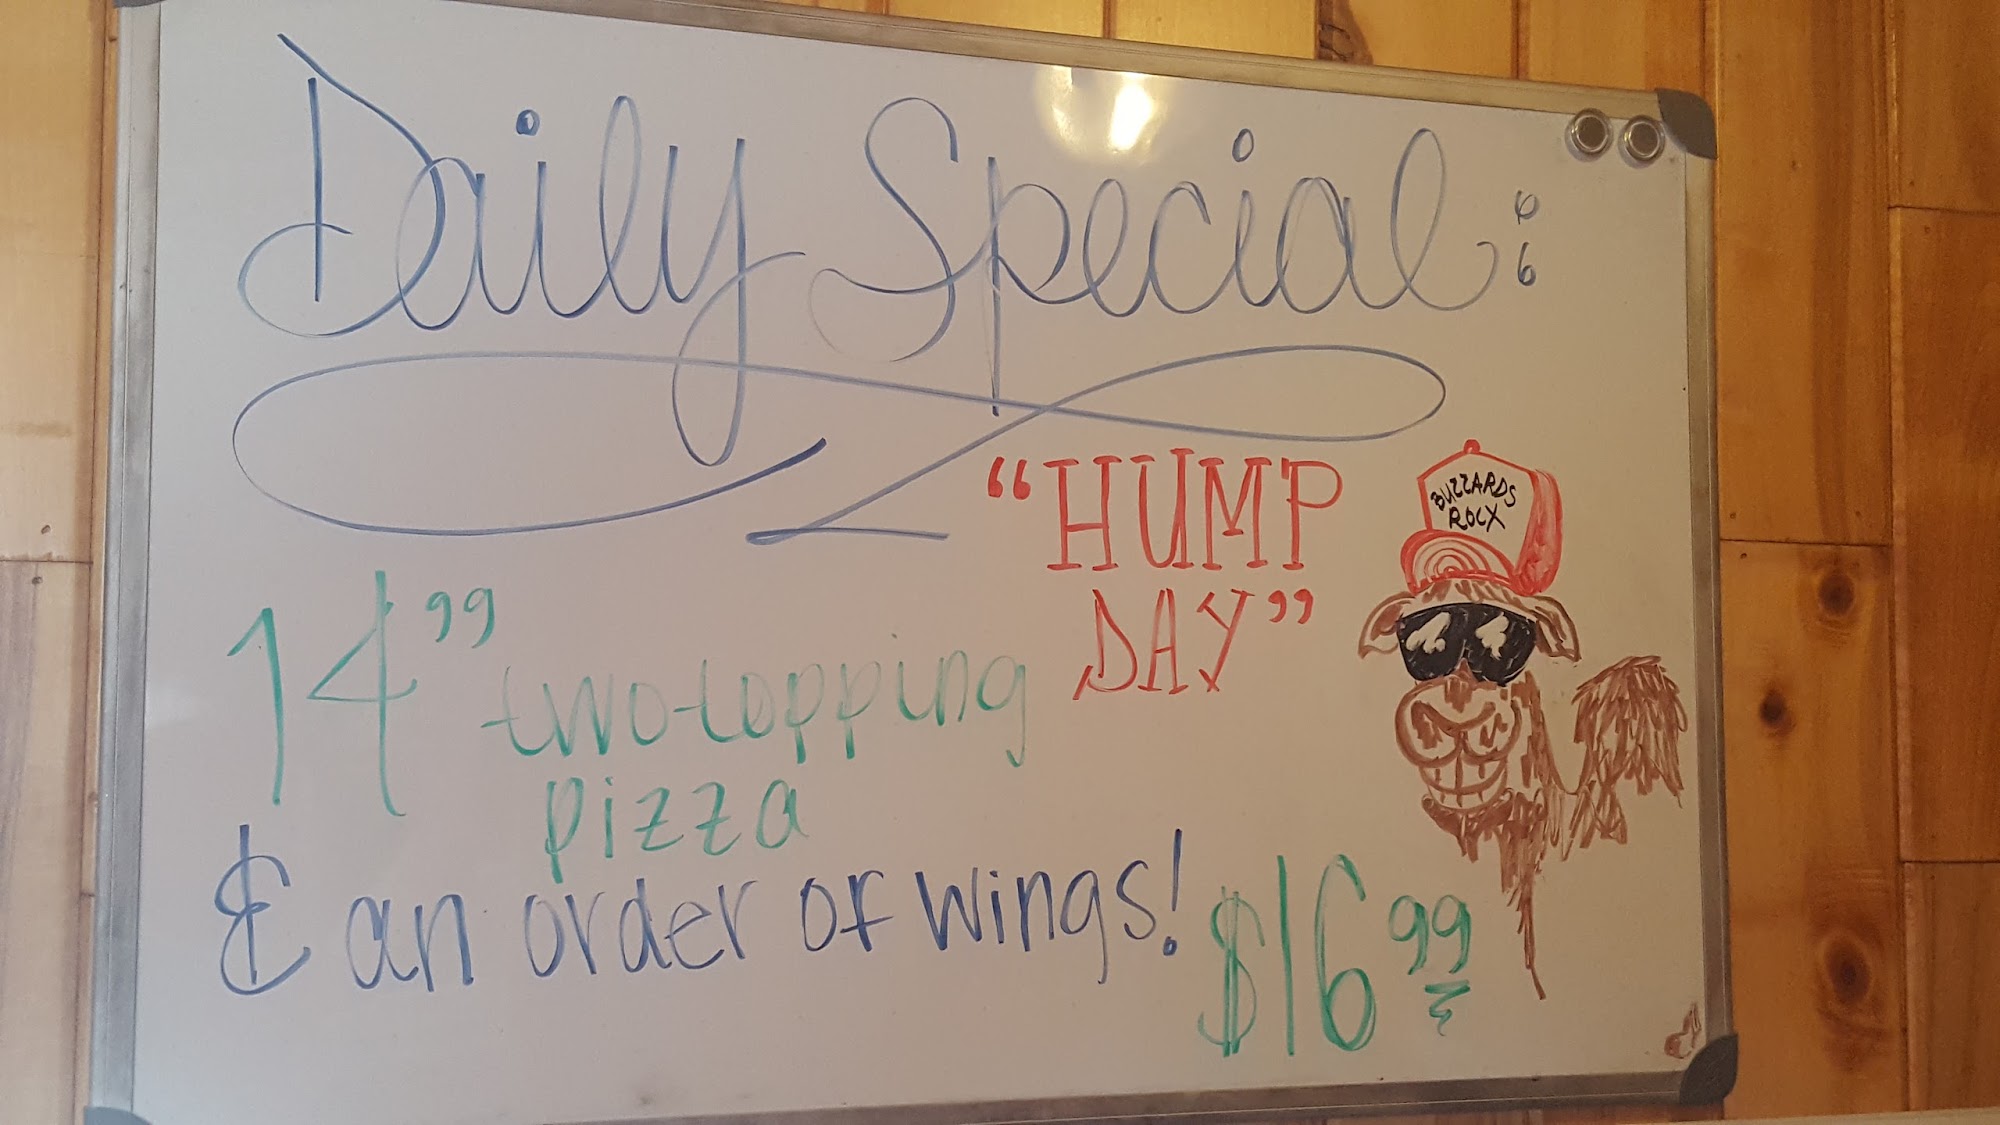 Daily Special:
"HUMP
DAY"
BUZZARDS
ROCX
14" two-topping
pizza
& an order of wings!
$16 99